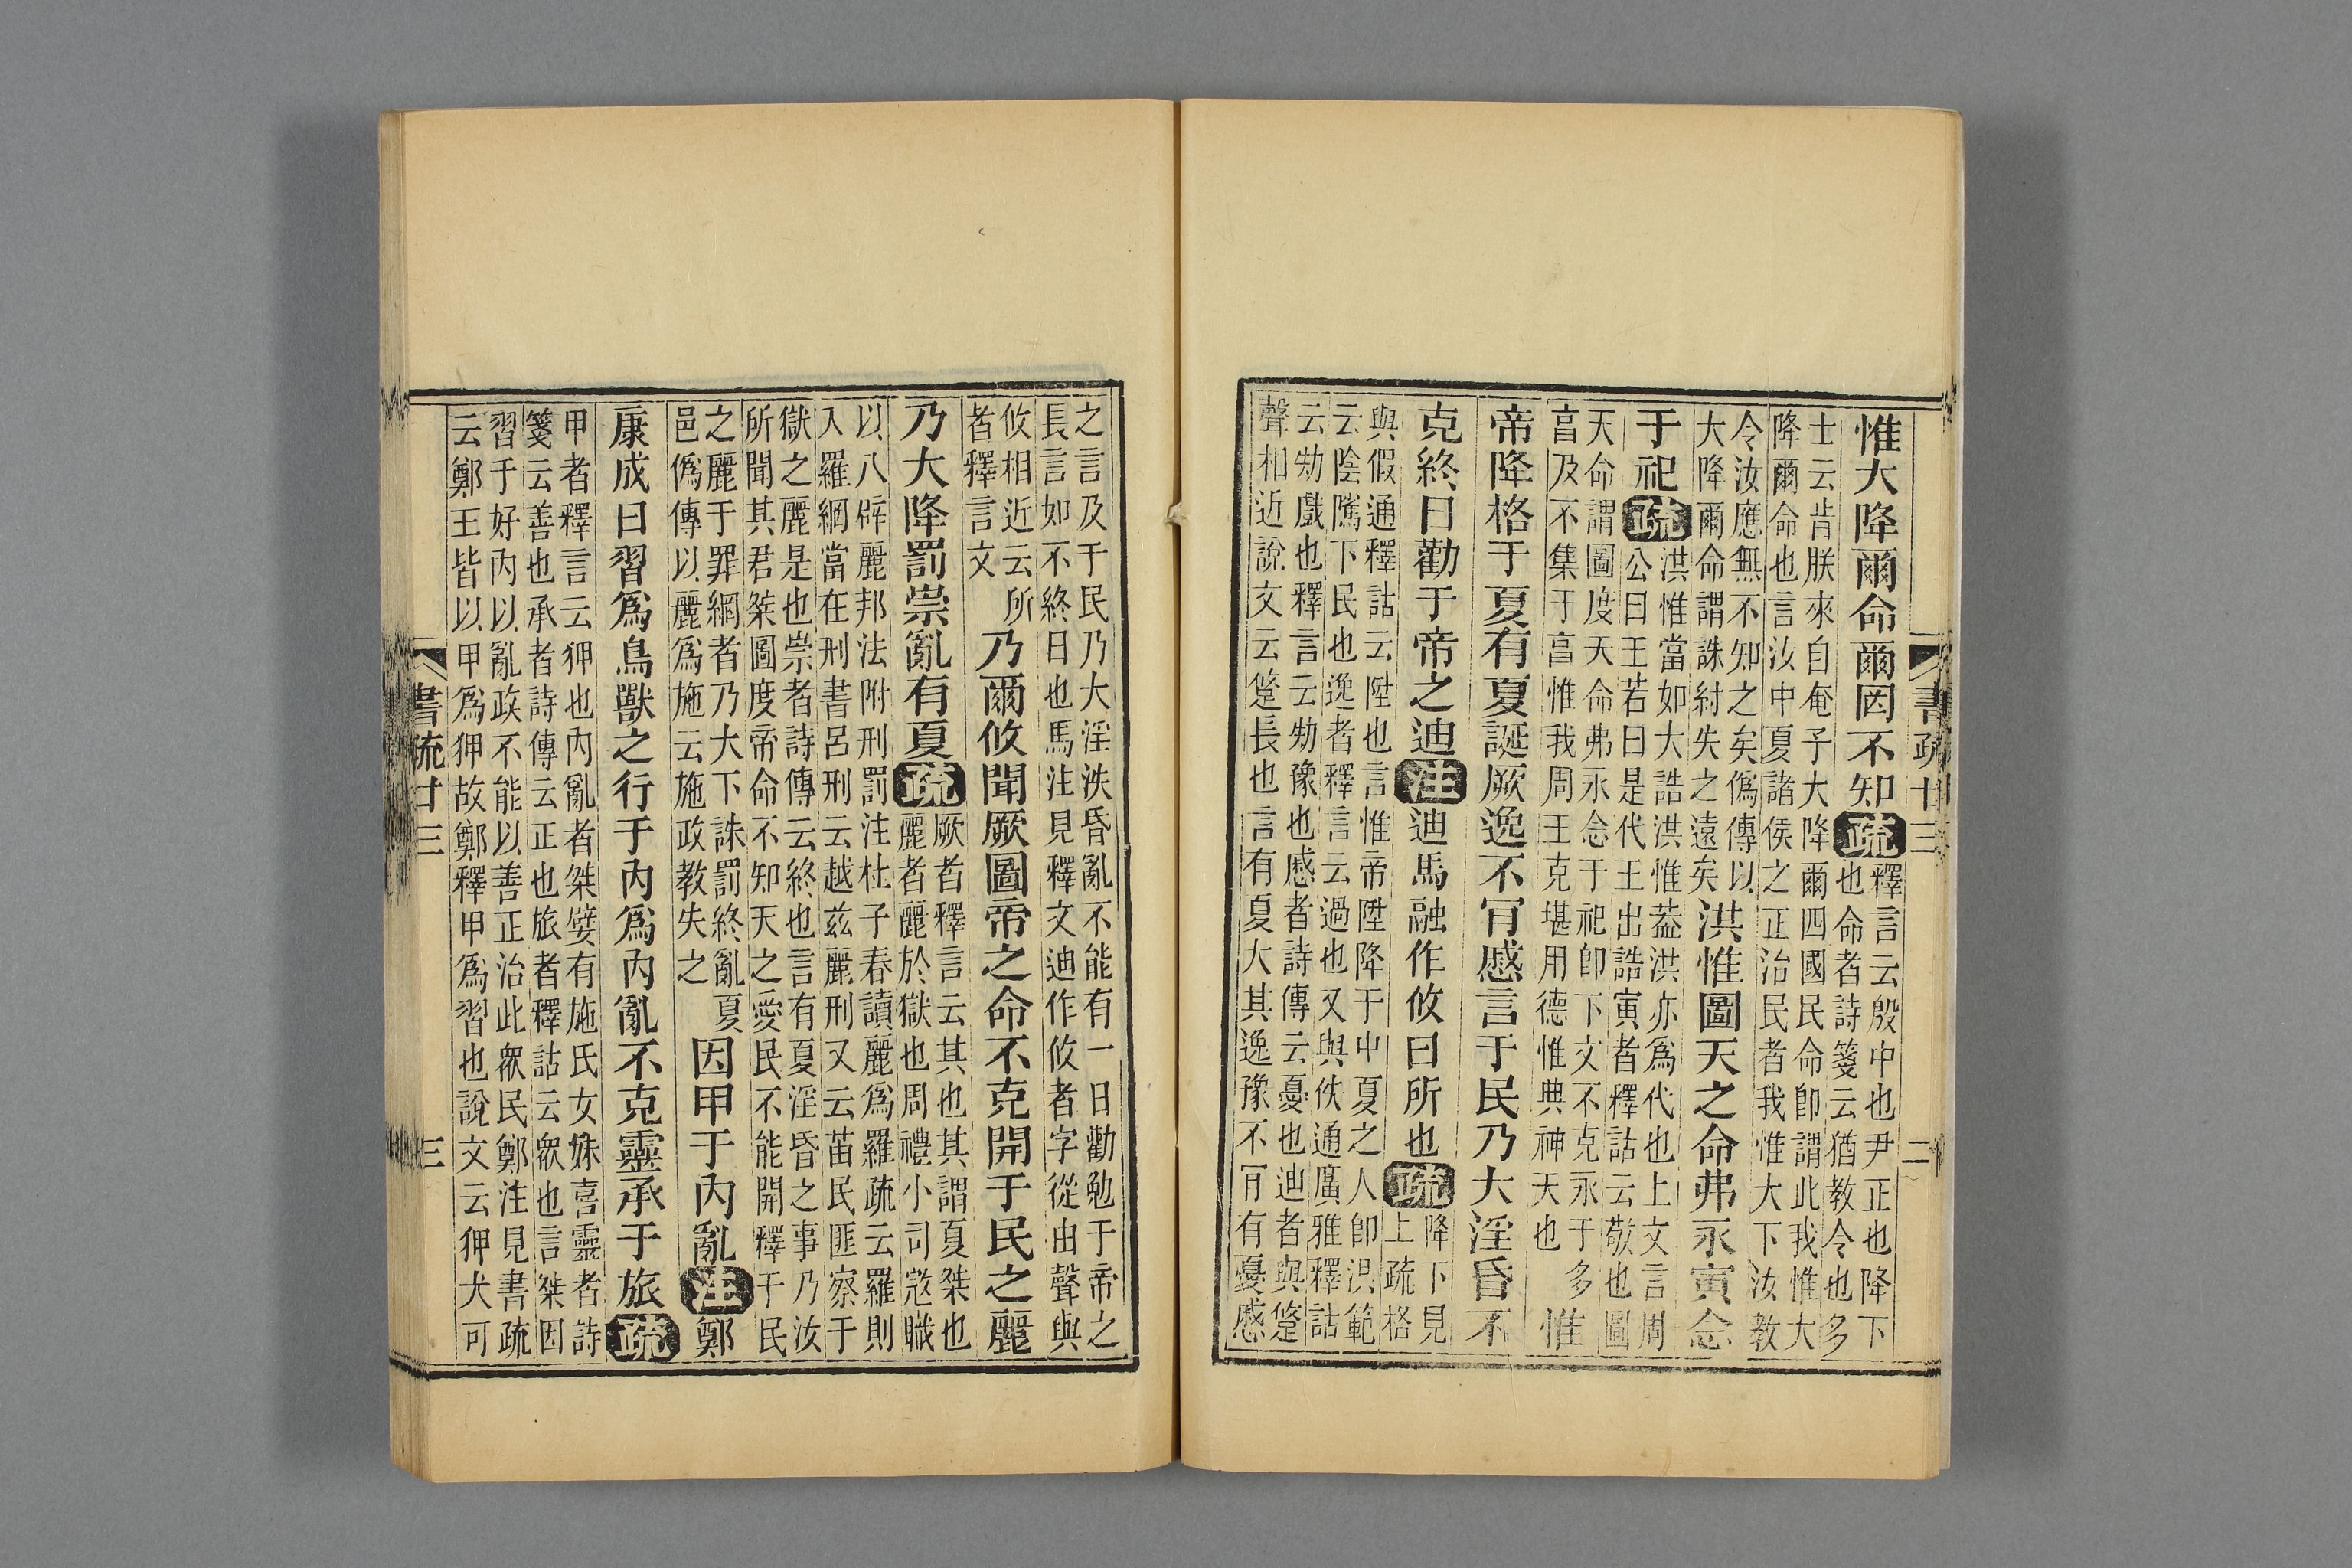 書疏廿三 二
惟大降爾命爾罔不知疏
釋言云殷中也尹正也降下
也命者詩箋云猶教令也多
士云昔朕來自奄予大降爾四國民命卽謂此我惟大
降爾命也言汝中夏諸侯之正治民者我惟大下汝教
令汝應無不知之矣僞傳以
大降爾命謂誅紂失之遠矣
洪惟圖天之命弗永寅念
于祀疏
洪惟當如大誥洪惟葢洪亦爲代也上文言周
公曰王若曰是代王出誥寅者釋詁云敬也圖
天命謂圖度天命弗永念于祀卽下文不克永于多
亯及不集于亯惟我周王克堪用德惟典神天也
惟
帝降格于夏有夏誕厥逸不肎慼言于民乃大淫昏不
克終日勸于帝之迪注迪馬融作攸曰所也疏
降下見
上疏格
與假通釋詁云陞也言惟帝陞降于中夏之人卽洪範
云陰騭下民也逸者釋言云過也又與佚通廣雅釋詁
云劮戲也釋言云劮豫也慼者詩傳云憂也迪者與跾
聲相近說文云跾長也言有夏大其逸豫不肎有憂慼
之言及于民乃大淫泆昏亂不能有一日勸勉于帝之
長言如不終日也馬注見釋文迪作攸者字從由聲與
攸相近云所
者釋言文
乃爾攸聞厥圖帝之命不克開于民之麗
乃大降罰崇亂有夏疏
厥者釋言云其也其謂夏桀也
麗者麗於獄也周禮小司寇職
以八辟麗邦法附刑罰注杜子春讀麗爲羅疏云羅則
入羅網當在刑書呂刑云越茲麗刑又云苗民匪察于
獄之麗是也崇者詩傳云終也言有夏淫昏之事乃汝
所聞其君桀圖度帝命不知天之愛民不能開釋于民
之麗于罪網者乃大下誅罰終亂夏
邑僞傳以麗爲施云施政教失之
因甲于內亂注鄭
康成曰習爲鳥獸之行于內爲內亂不克靈承于旅疏
甲者釋言云狎也內亂者桀嬖有施氏女妺喜靈者詩
箋云善也承者詩傳云正也旅者釋詁云衆也言桀因
習于好內以亂政不能以善正治此衆民鄭注見書疏
云鄭王皆以甲爲狎故鄭釋甲爲習也說文云狎犬可
書疏廿三 三